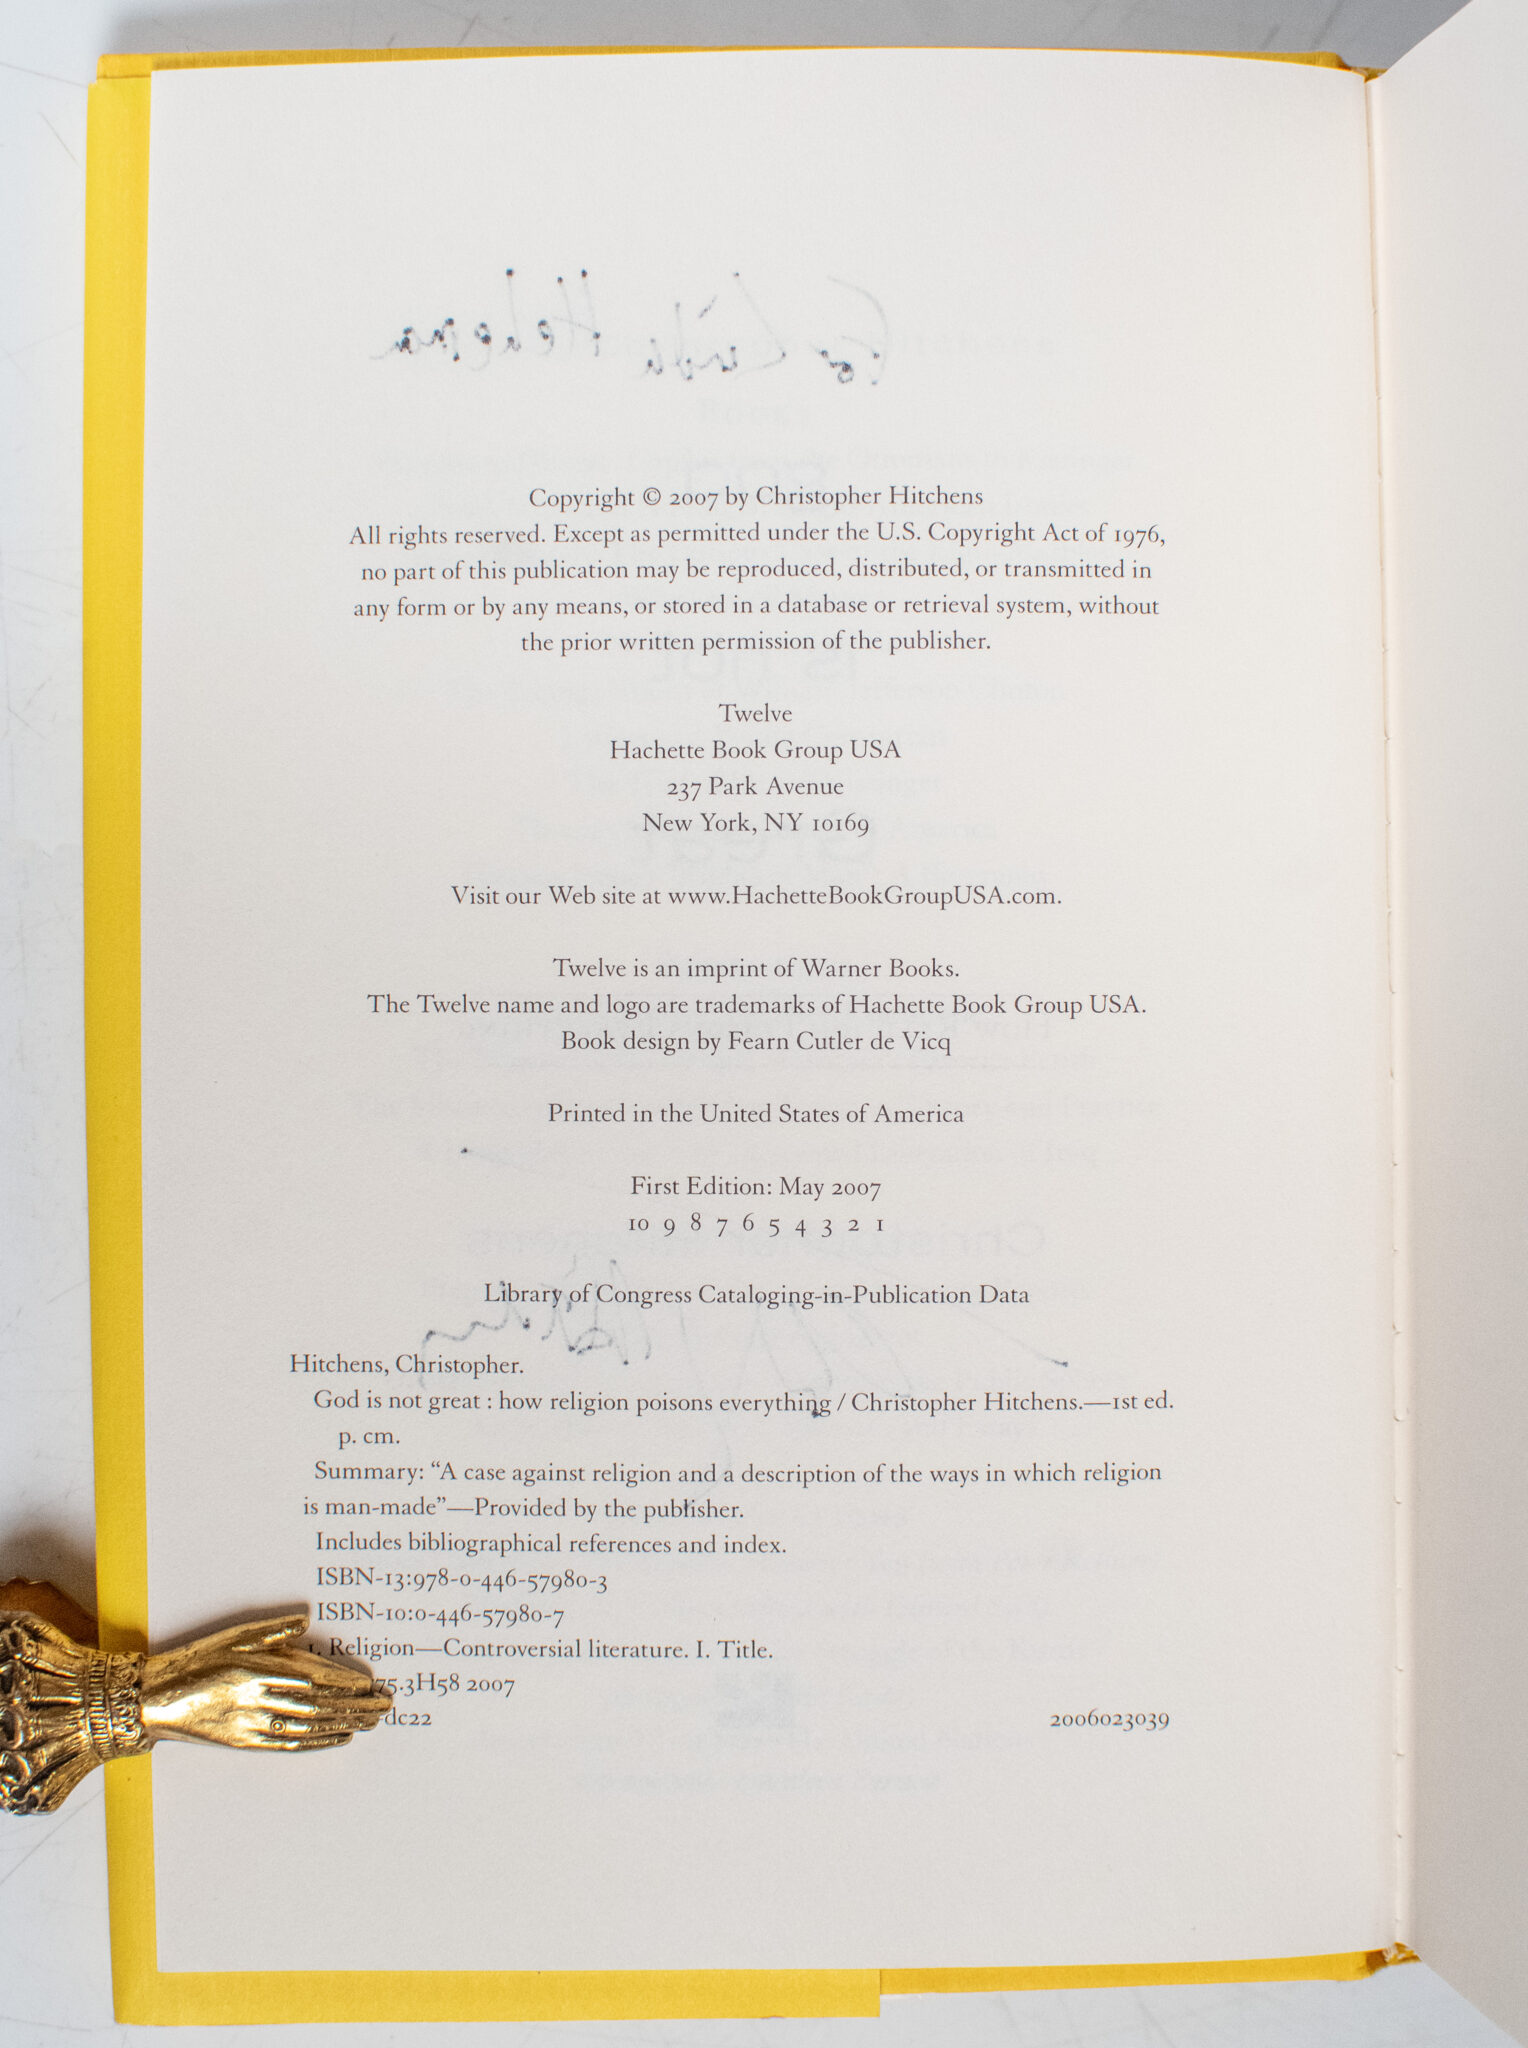 Copyright © 2007 by Christopher Hitchens
All rights reserved. Except as permitted under the U.S. Copyright Act of 1976,
no part of this publication may be reproduced, distributed, or transmitted in
any form or by any means, or stored in a database or retrieval system, without
the prior written permission of the publisher.
Twelve
Hachette Book Group USA
237 Park Avenue
New York, NY 10169
Visit our Web site at www.HachetteBookGroupUSA.com.
Twelve is an imprint of Warner Books.
The Twelve name and logo are trademarks of Hachette Book Group USA.
Book design by Fearn Cutler de Vicq
Printed in the United States of America
First Edition: May 2007
10 9 8 7 6 5 4 3 2 1
Library of Congress Cataloging-in-Publication Data
Hitchens, Christopher.
God is not great : how religion poisons everything / Christopher Hitchens.—1st ed.
p. cm.
Summary: “A case against religion and a description of the ways in which religion
is man-made”—Provided by the publisher.
Includes bibliographical references and index.
ISBN-13:978-0-446-57980-3
ISBN-10:0-446-57980-7
1. Religion—Controversial literature. I. Title.
75.3H58 2007
-dc22 2006023039